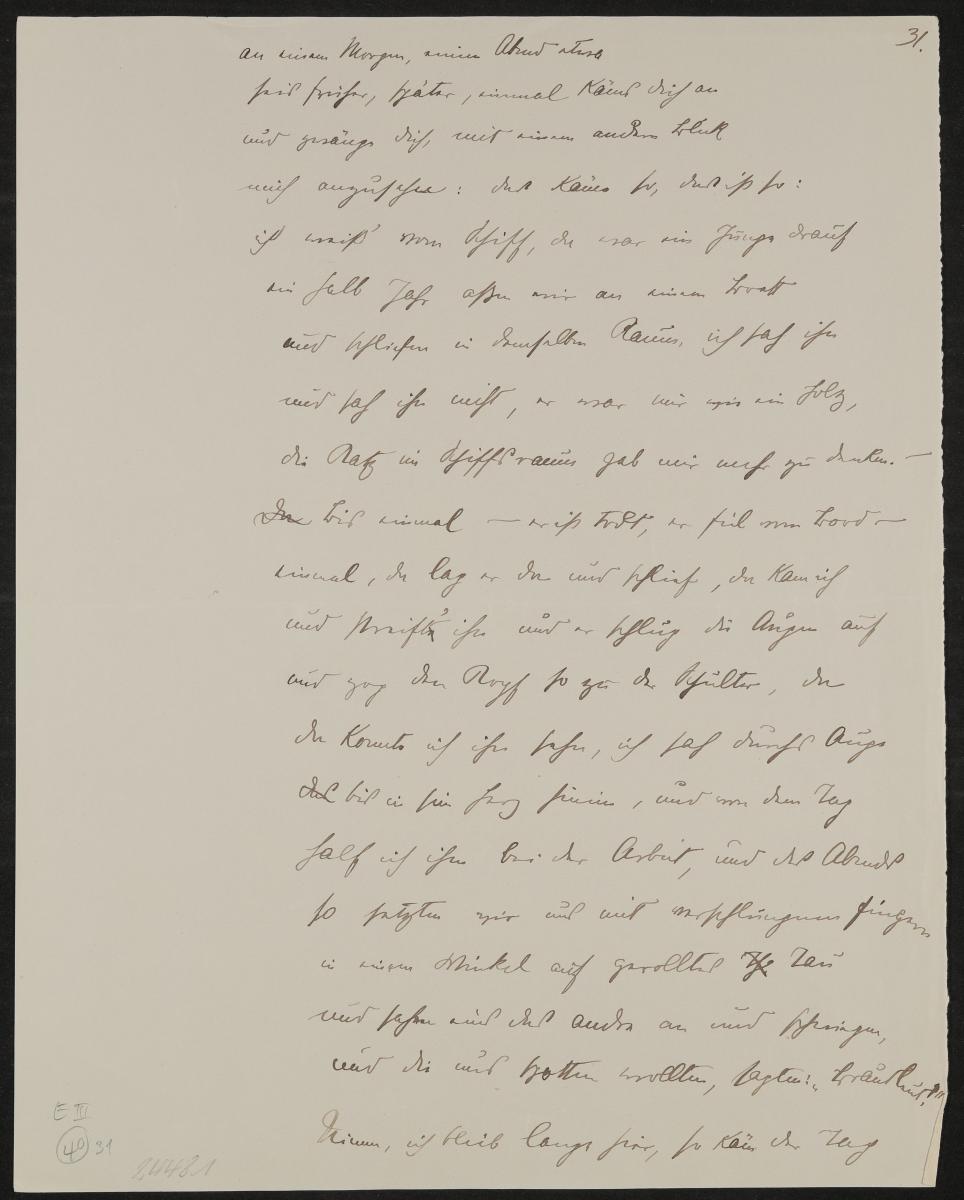 31.
an einem Morgen, einem Abend etwa
seis früher, später, einmal käms dich an
und zwänge dich, mit einem andern Blick
mich anzusehen: das käme so, das ist so:
ich weiß' vom Schiff, da war ein Junge drauf
ein halb Jahr aßen wir an einem Brett
und schliefen in demselben Raum, ich sah ihn
und sah ihn nicht, er war mir wie ein Holz,
die Ratz im Schiffsraum gab mir mehr zu denken. –
Da bis einmal – er ist todt, er fiel vom Bord –
einmal, da lag er da und schlief, da kam ich
und streift' ihn und er schlug die Augen auf
und zog den Kopf so zu der Schulter, da
da konnte ich ihn sehn, ich sah durchs Auge
das bis in sein Herz hinein, und von dem Tag
half ich ihm bei der Arbeit, und des Abends
so setzten wir uns mit verschlungnen Fingern
in einem Winkel auf gerolltes Tau
und sahen eins das andre an und schwiegen,
und die uns spotten wollten, sagten: „Brautleut."
Nimm, ich blieb lange hier, so käm der Tag
E III
40 31
24481